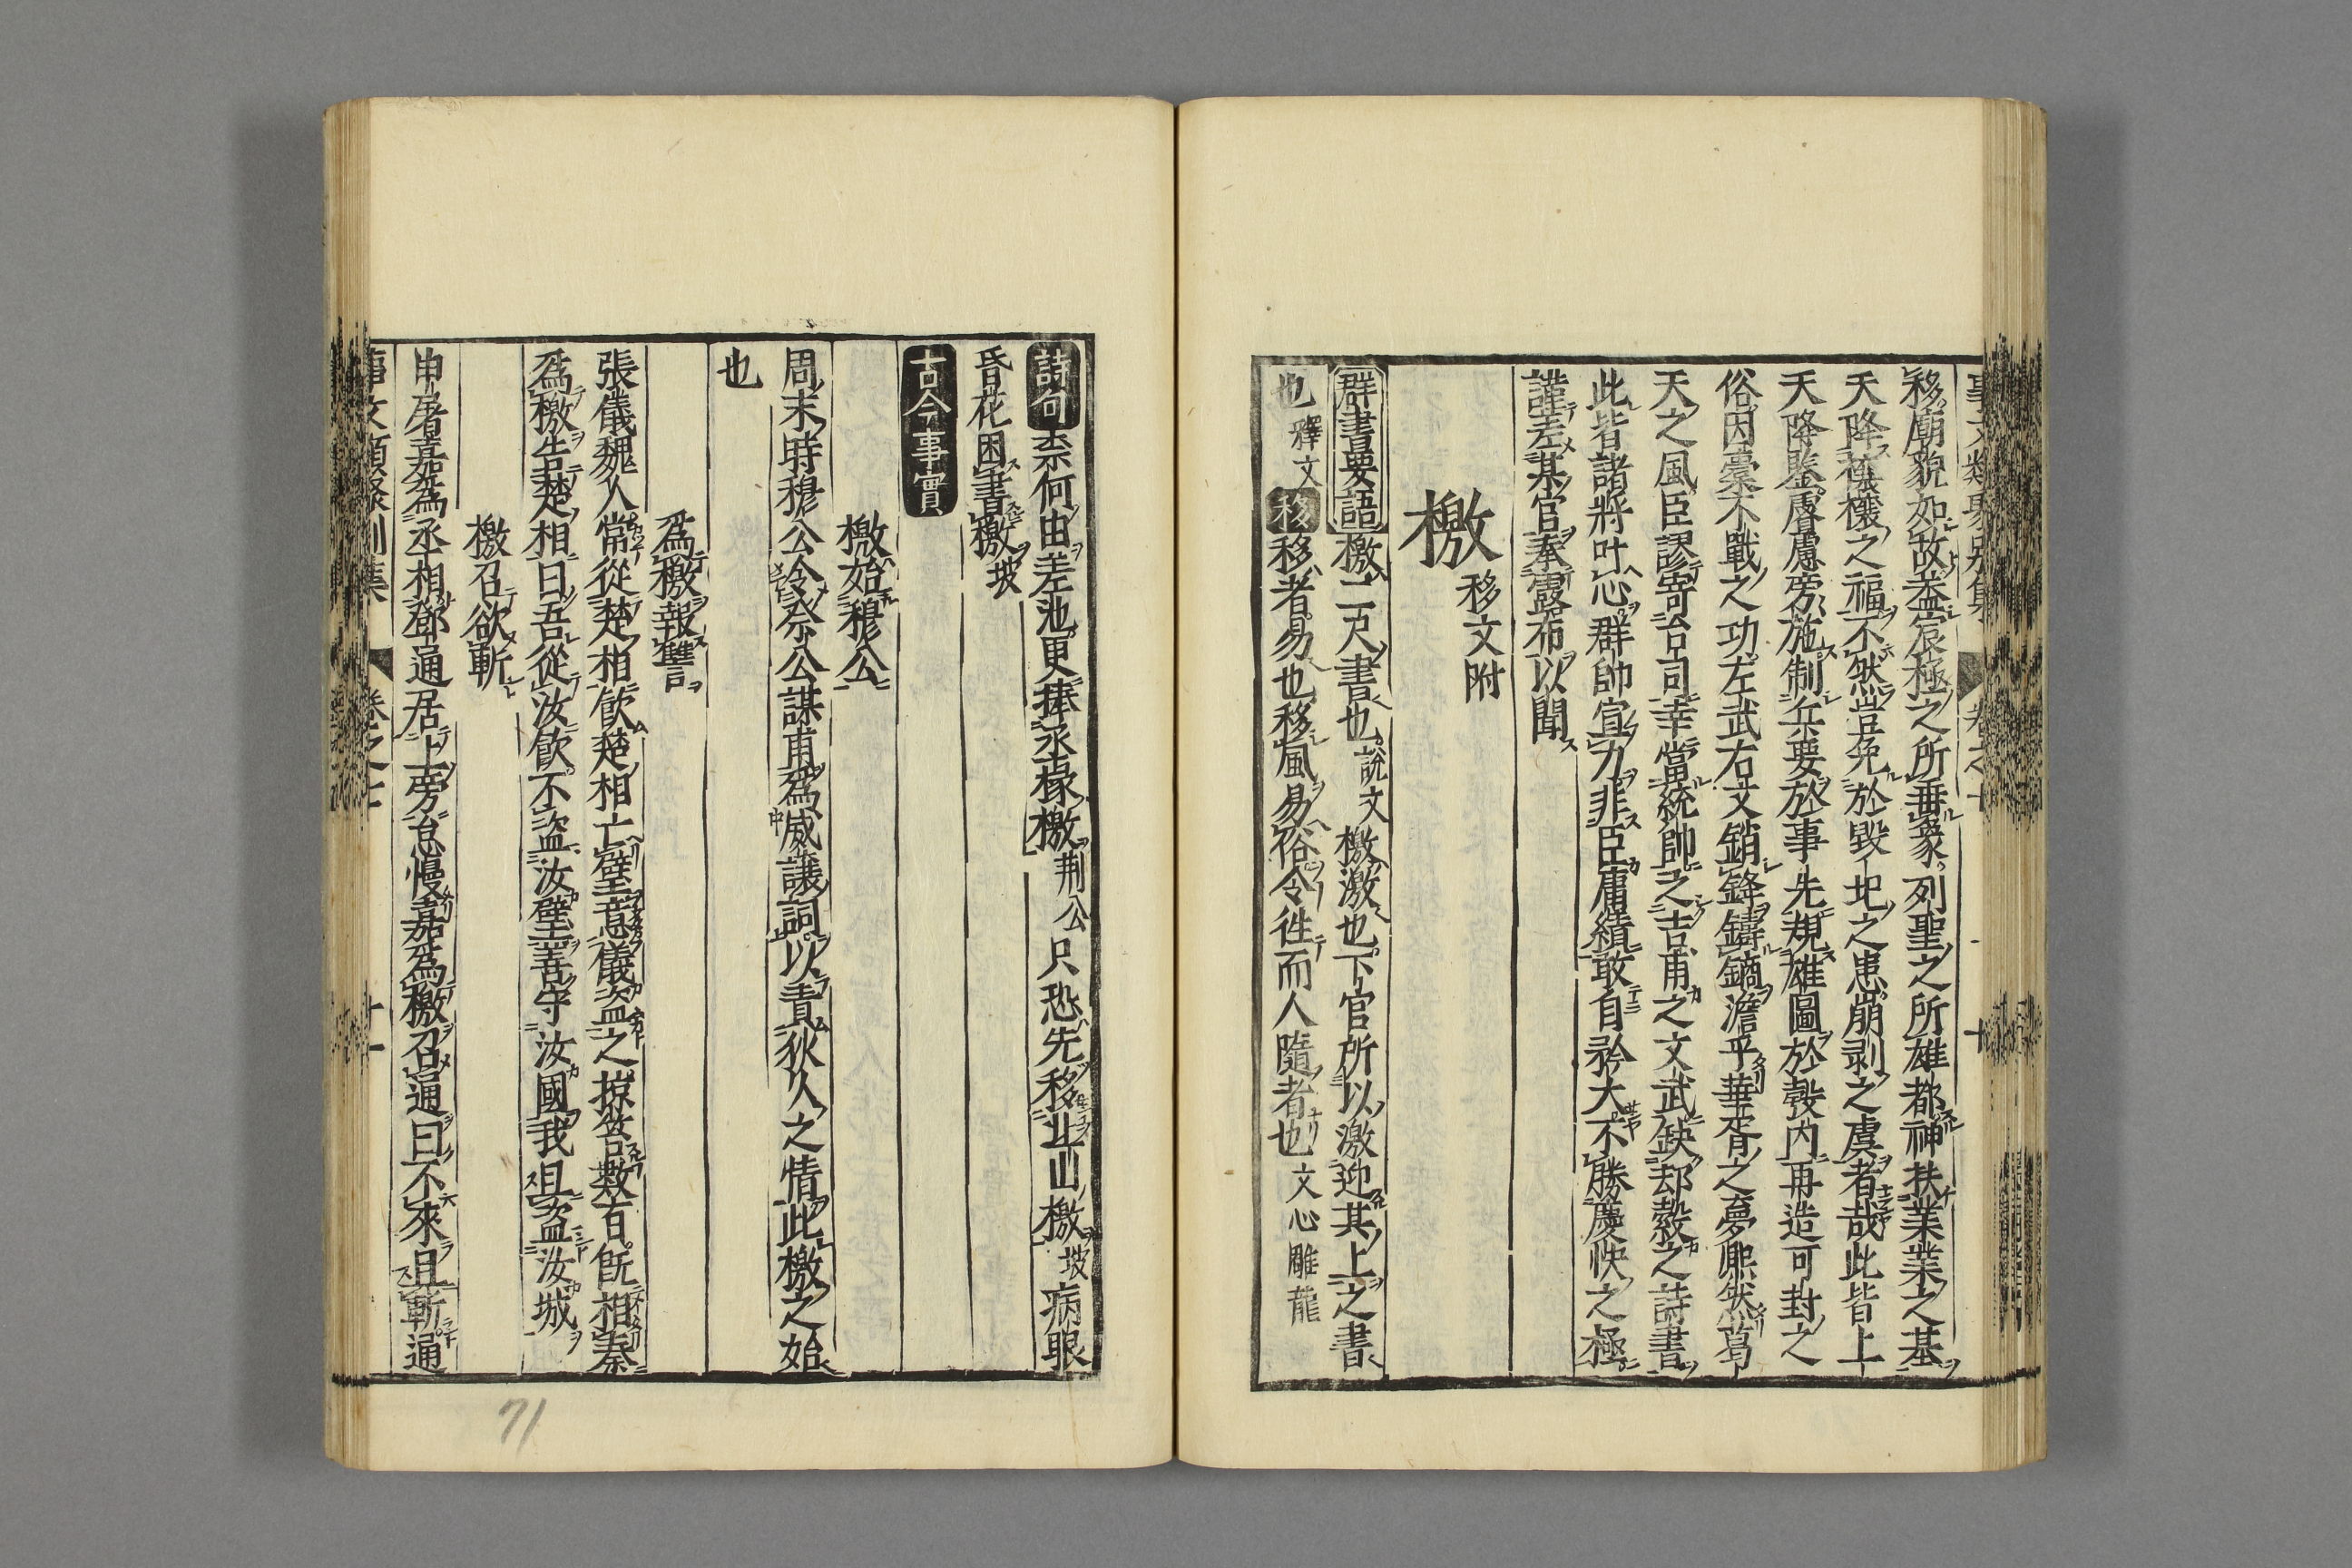 移廟貌如故蓋宸極之所垂象列聖之所雄都神扶業業之基
天降穰穰之福不然豈免於毀圯之患崩剥之虞者哉此皆上
天降鑒睿慮旁施制兵要於事先規雄圖於彀内再造可封之
俗因臺不戰之功左武右文銷鋒鑄鏑澹乎華胥之夢熈然葛
天之風臣謬寄台司幸當統帥之吉甫之文武缺郄縠之詩書
此皆諸將叶心群帥宣力非臣庸績敢自矜大不勝慶快之極
謹差某官奉露布以聞
檄 移文附
群書要語檄二尺書也說文檄激也下官所以激迎其上之書
也釋文移移者易也移風易俗令徃而人隨者也文心雕龍
詩句柰何由差池更捧丞椽檄荆公只恐先移北山檄坡病眼
昏花困書檄坡
古今事實
檄始穆公
周末時穆公令祭公謀甫爲威讓詞以責狄人之情此檄之始
也
爲檄報讐
張儀魏人常從楚相飮楚相亡璧意儀盗之掠笞數百旣相秦
爲檄告楚相曰吾從汝飮不盗汝璧善守汝國我且盗汝城
檄召欲斬
申屠嘉爲丞相鄧通居上旁怠慢嘉爲檄召通曰不來且斬通
卷之七
十一